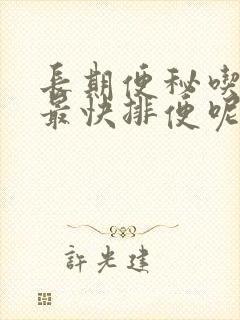 長期便秘喫
最快排便呢
許光建